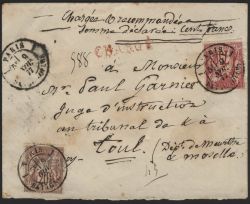 Chargée & recommandée
Somme déclarée: Cent francs.
CHARGÉ
588
à Monsieur
Mr. Paul Garnier
Juge d'instruction
au tribunal de &a
Toul.
Dépt. de Meurthe
& Moselle.
PARIS